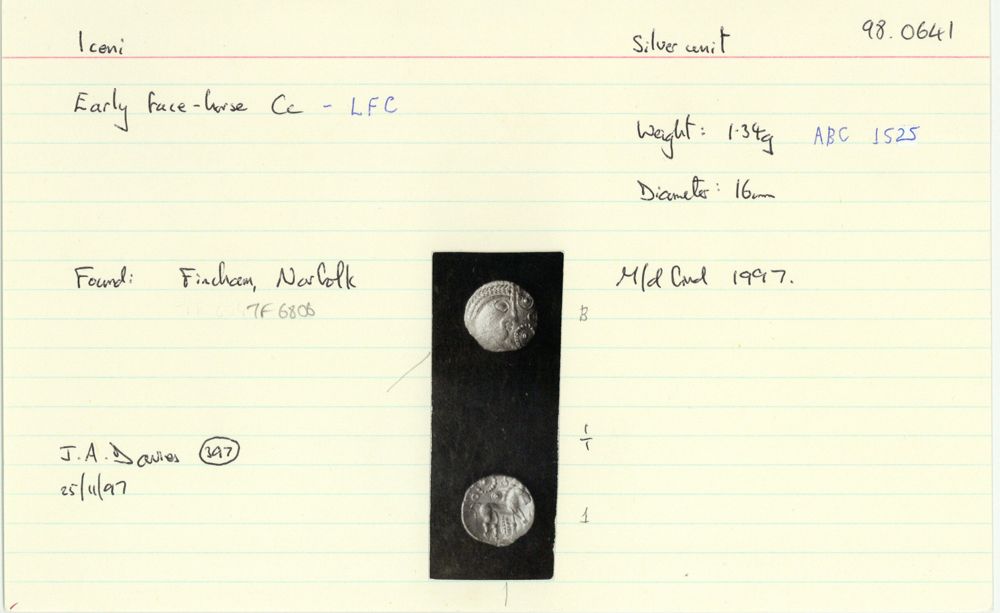 98.0641
Iceni Silver unit
Early face-horse Cc - LFC
Weight: 1.34g ABC 1525
Diameter: 16mm
Found: Fincham, Norfolk M/d find 1997.
TF 6806
B
J.A. Davies 397
25/11/97
1